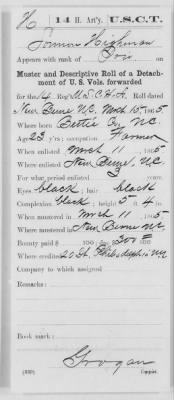 H | 14 H. Art'y. | U.S.C.T.
Highman
Appears with rank of Pvt. on
Muster and Descriptive Roll of a Detach-
ment of U. S. Vols. forwarded
for the 14 Reg't U S C H A. Roll dated
New Berne N.C. Mch 15, 1865.
Where born Bertie Co, N.C.
Age 23 y'rs; occupation Farmer
When enlisted Mch 11, 1865
Where enlisted New Berne, N.C.
For what period enlisted years.
Eyes black; hair black
Complexion black; height 5 ft. 4 in.
When mustered in Mch 11, 1865
Where mustered in New Berne N.C.
Bounty paid $ 100; due $ 300 100
Where credited
Company to which assigned
Remarks:
Book mark:
Grogan
(339) Copyist.